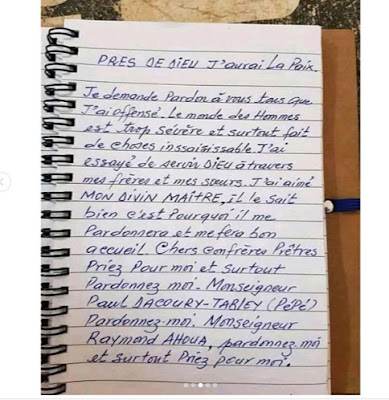 PRES DE DIEU J'aurai La Paix.
Je demande Pardon à vous tous que
J'ai offensé. Le monde des Hommes
est trop sévère et surtout fait
de choses inssaisissable. J'ai
essayé de servir DIEU à travers
mes frères et mes sœurs. J'ai aimé
MON DIVIN MAÎTRE, il le sait
bien c'est Pourquoi il me
Pardonnera et me fera bon
accueil. Chers Confrères Prêtres
Priez Pour moi et surtout
Pardonnez moi. Monseigneur
Paul DACOURY-TABLEY (PéPé)
Pardonnez-moi. Monseigneur
Raymond AHOUA, pardonnez moi
et surtout Priez pour moi.